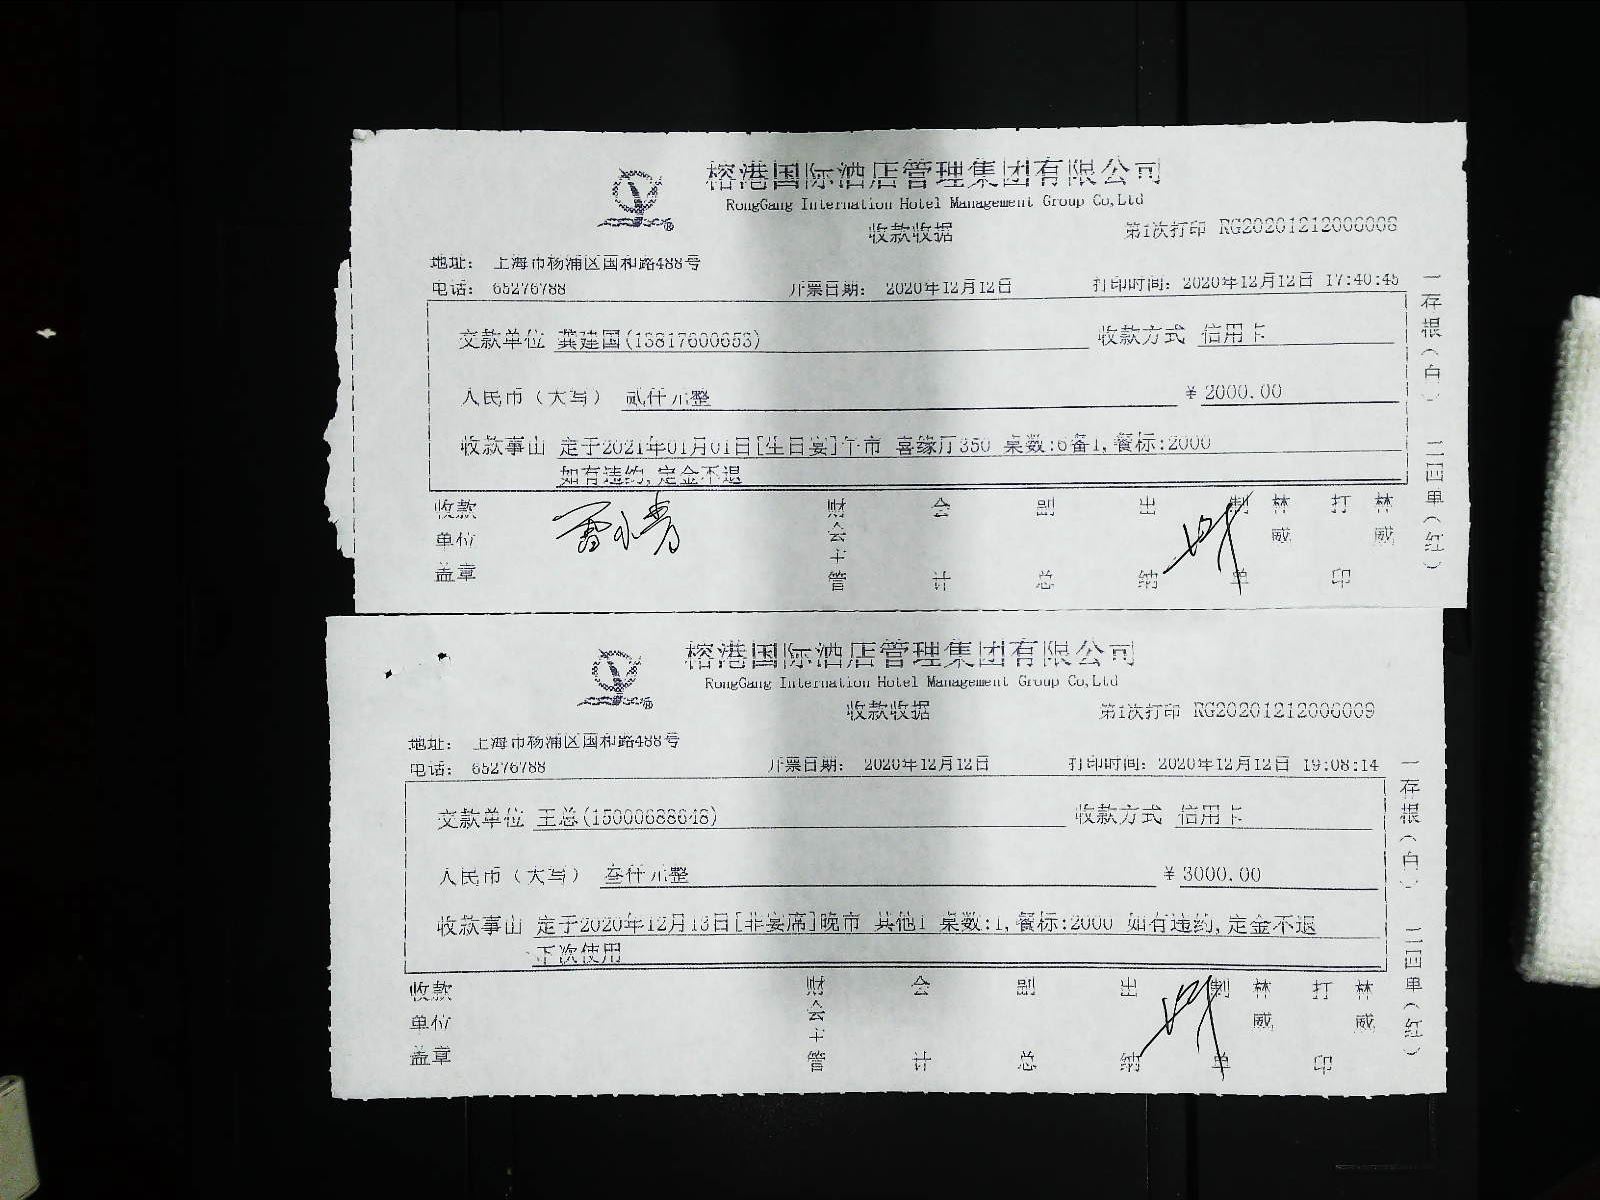 榕港国际酒店管理集团有限公司
RongGang Internation Hotel Management Group Co,Ltd
收款收据
第1次打印 RG20201212006008
地址: 上海市杨浦区国和路488号
电话: 65276788 开票日期: 2020年12月12日 打印时间: 2020年12月12日 17:40:45
交款单位 龚建国(13817600653) 收款方式 信用卡
人民币（大写） 贰仟元整 ￥2000.00
收款事由 定于2021年01月01日[生日宴]午市 喜缘厅350 桌数:6备1,餐标:2000
如有违约,定金不退
收款单位盖章 财会主管 会计 副总 出纳 制单 林威 打印 林威
一存根（白） 二四单（红）
榕港国际酒店管理集团有限公司
RongGang Internation Hotel Management Group Co,Ltd
收款收据
第1次打印 RG20201212006009
地址: 上海市杨浦区国和路488号
电话: 65276788 开票日期: 2020年12月12日 打印时间: 2020年12月12日 19:08:14
交款单位 王总(15000688648) 收款方式 信用卡
人民币（大写） 叁仟元整 ￥3000.00
收款事由 定于2020年12月13日[非宴席]晚市 其他1 桌数:1,餐标:2000 如有违约,定金不退
下次使用
收款单位盖章 财会主管 会计 副总 出纳 制单 林威 打印 林威
一存根（白） 二四单（红）